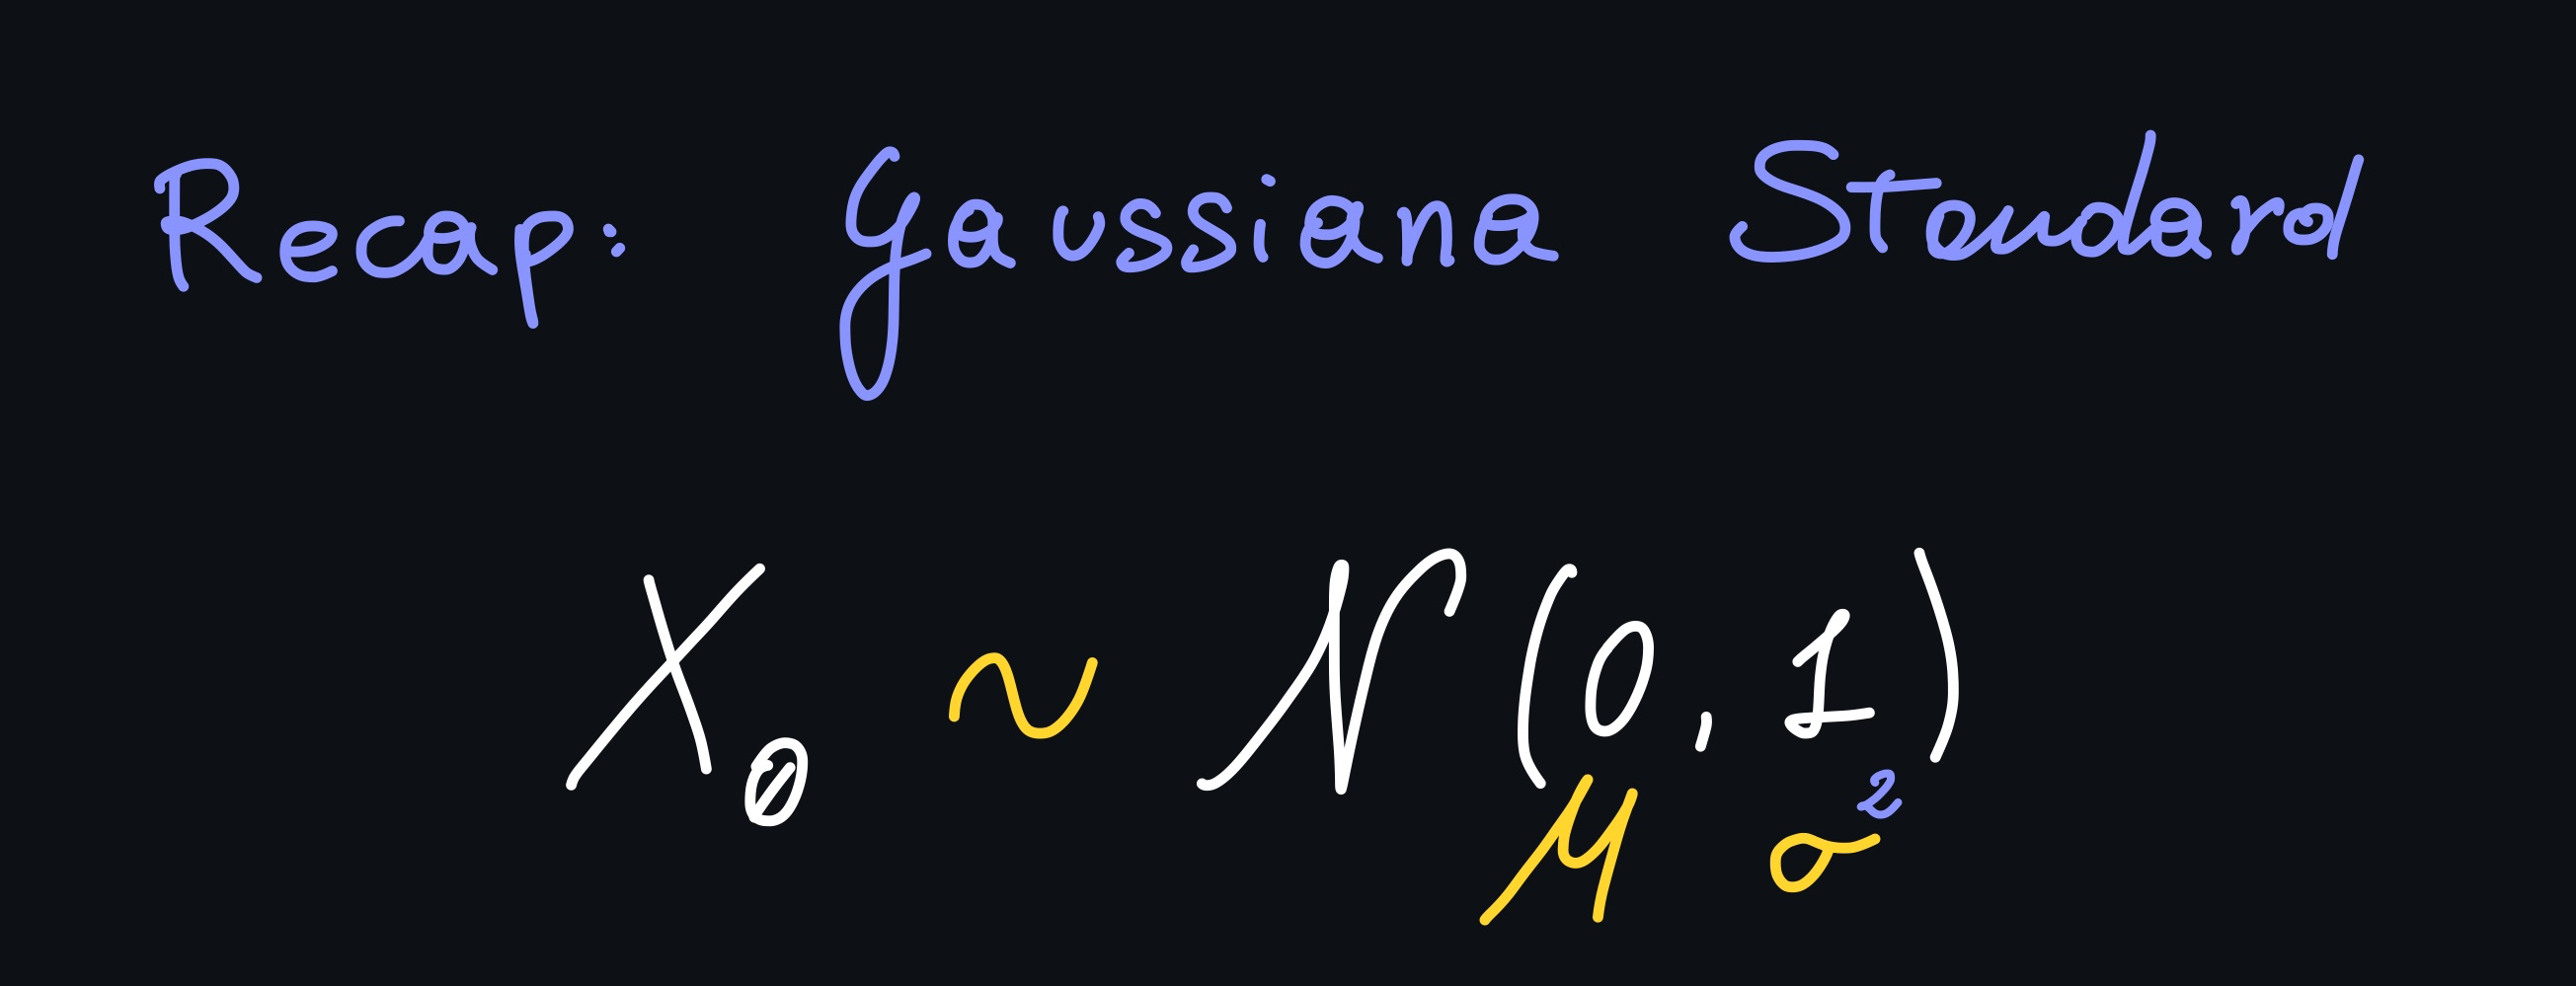 Recap: Gaussiana Standard
X₀ ~ N(0, 1)
μ σ²